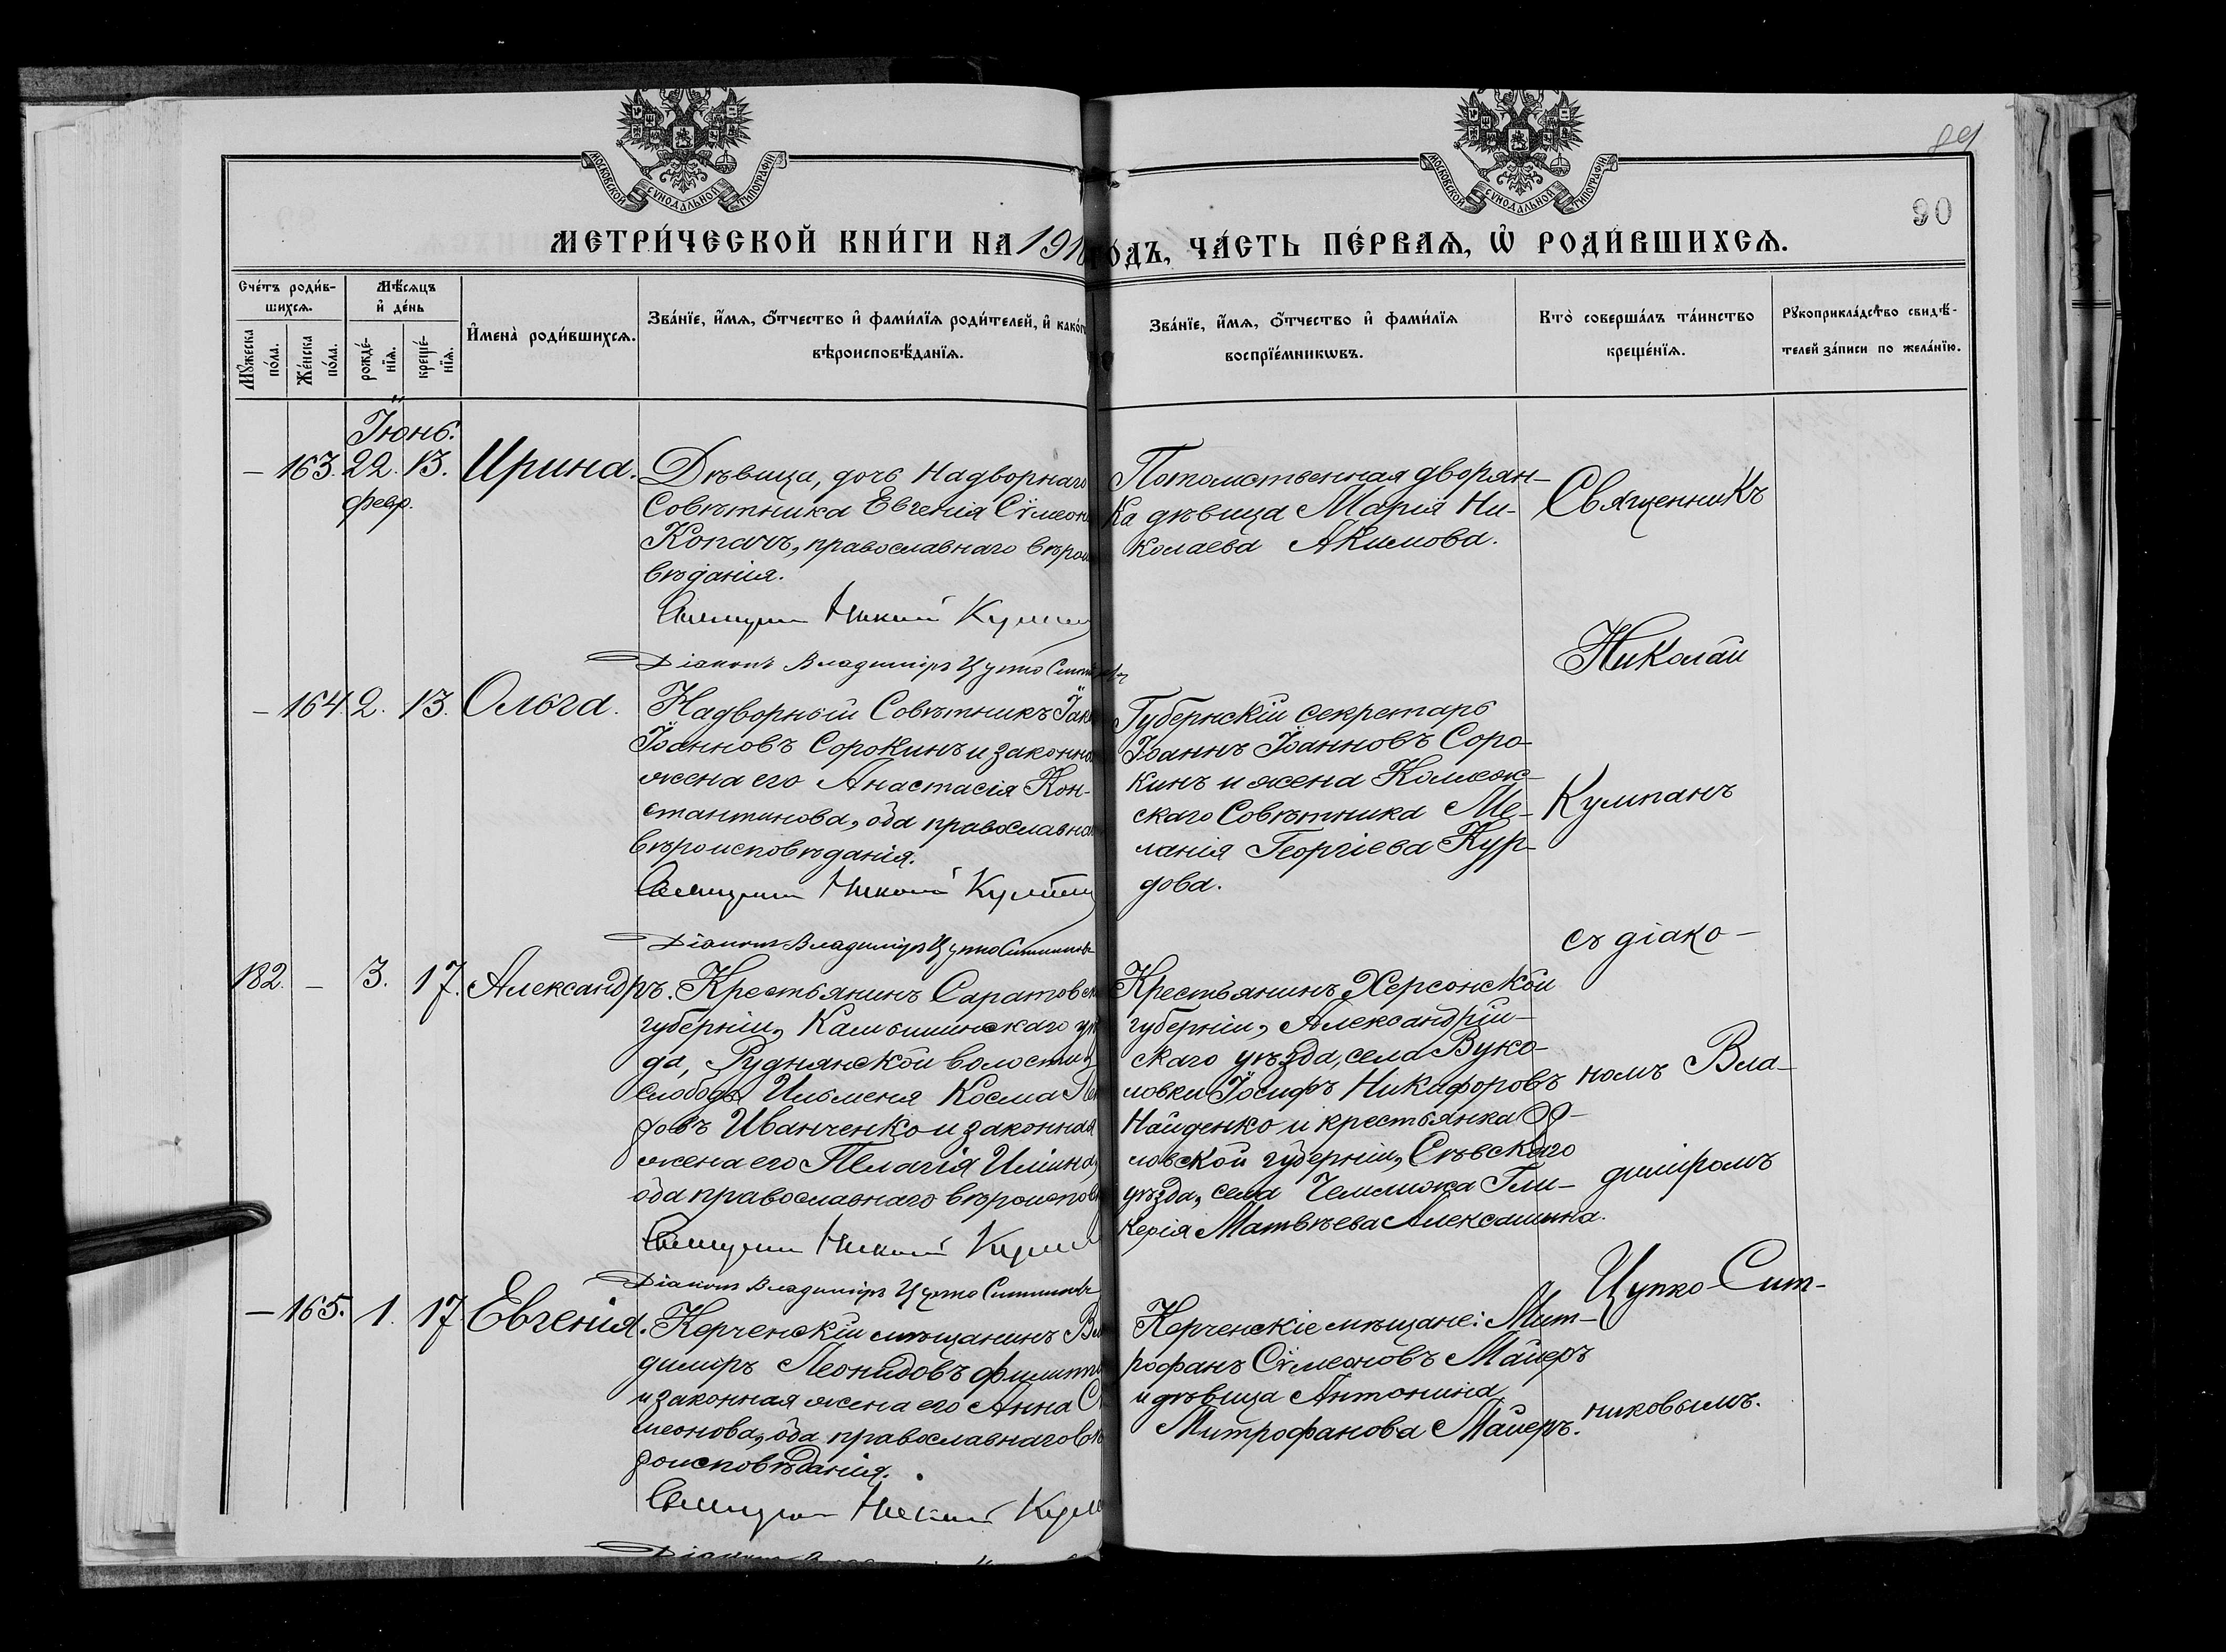 МОСКОВСКОЙ СѴНОДАЛЬНОЙ ТИПОГРАФІИ
МОСКОВСКОЙ СѴНОДАЛЬНОЙ ТИПОГРАФІИ
89
90
МЕТРИ́ЧЕСКОЙ КНИ́ГИ НА 1910 ГО́ДЪ, ЧА́СТЬ ПЕ́РВАѦ, Ѡ҆ РОДИ́ВШИХСѦ.
Сче́тъ роди́в-
шихсѧ.
Мꙋ́жеска по́ла.
Же́нска по́ла.
Мѣ́сѧцъ
и҆ де́нь
рожде́-
нїѧ.
креще́-
нїѧ.
И҆мена̀ роди́вшихсѧ.
Зва́нїе, и҆́мѧ, ѻ҆́тчество и҆ фами́лїѧ роди́телей, и҆ како́г
вѣроисповѣ́данїѧ.
Зва́нїе, и҆́мѧ, ѻ҆́тчество и҆ фами́лїѧ
воспрїе́мникѡвъ.
Кто̀ соверша́лъ та́инство
креще́нїѧ.
Рꙋкоприкла́дство свидѣ́-
телей за́писи по жела́нїю.
Іюнь.
— 163. 22. 13. Ирина.
февр.
Дѣвица, дочь Надворнаго
Совѣтника Евгенія Сѵмеон
Копачъ, православнаго вѣрои
вѣданія.
Священникъ Николай Кумпан
Діаконъ Владиміръ Цупко Ситников
Потомственная дворян-
ка дѣвица Марія Ни-
колаева Акимова.
— 164. 2. 13. Ольга.
Надворный Совѣтникъ Іак
Іоанновъ Сорокинъ и законна
жена его Анастасія Кон-
стантинова, оба православна
вѣроисповѣданія.
Священникъ Николай Кумпан
Діаконъ Владиміръ Цупко Ситников
Губернскій секретарь
Іоаннъ Іоанновъ Соро-
кинъ и жена Коллеж-
скаго Совѣтника Ме-
ланія Георгіева Кур-
дова.
182. — 3. 17. Александръ.
Крестьянинъ Саратовск
губерніи, Камышинскаго уѣ
да, Руднянской волости,
слободы Ильменя Косма
довъ Иванченко и законная
жена его Пелагія Иліина,
оба православнаго вѣроисповѣ
Священникъ Николай Кумпан
Діаконъ Владиміръ Цупко Ситников
Крестьянинъ Херсонской
губерніи, Александрій-
скаго уѣзда, села Вуко-
ловки Іосифъ Никифоровъ
Найденко и крестьянка Ор-
ловской губерніи, Сѣвскаго
уѣзда, села Чемлижа Гли-
керія Матвѣева Алексашина.
— 165. 1. 17 Евгенія.
Керченскій мѣщанинъ Вла
диміръ Леонидовъ Филипп
и законная жена его Анна С
меонова, оба православнаго вѣ
роисповѣданія.
Священникъ Николай Кумп
Керченскіе мѣщане: Мит-
рофанъ Сѵмеоновъ Майеръ
и дѣвица Антонина
Митрофанова Майеръ.
Священникъ
Николай
Кумпанъ
съ діако-
номъ Вла-
диміромъ
Цупко-Сит-
никовымъ.